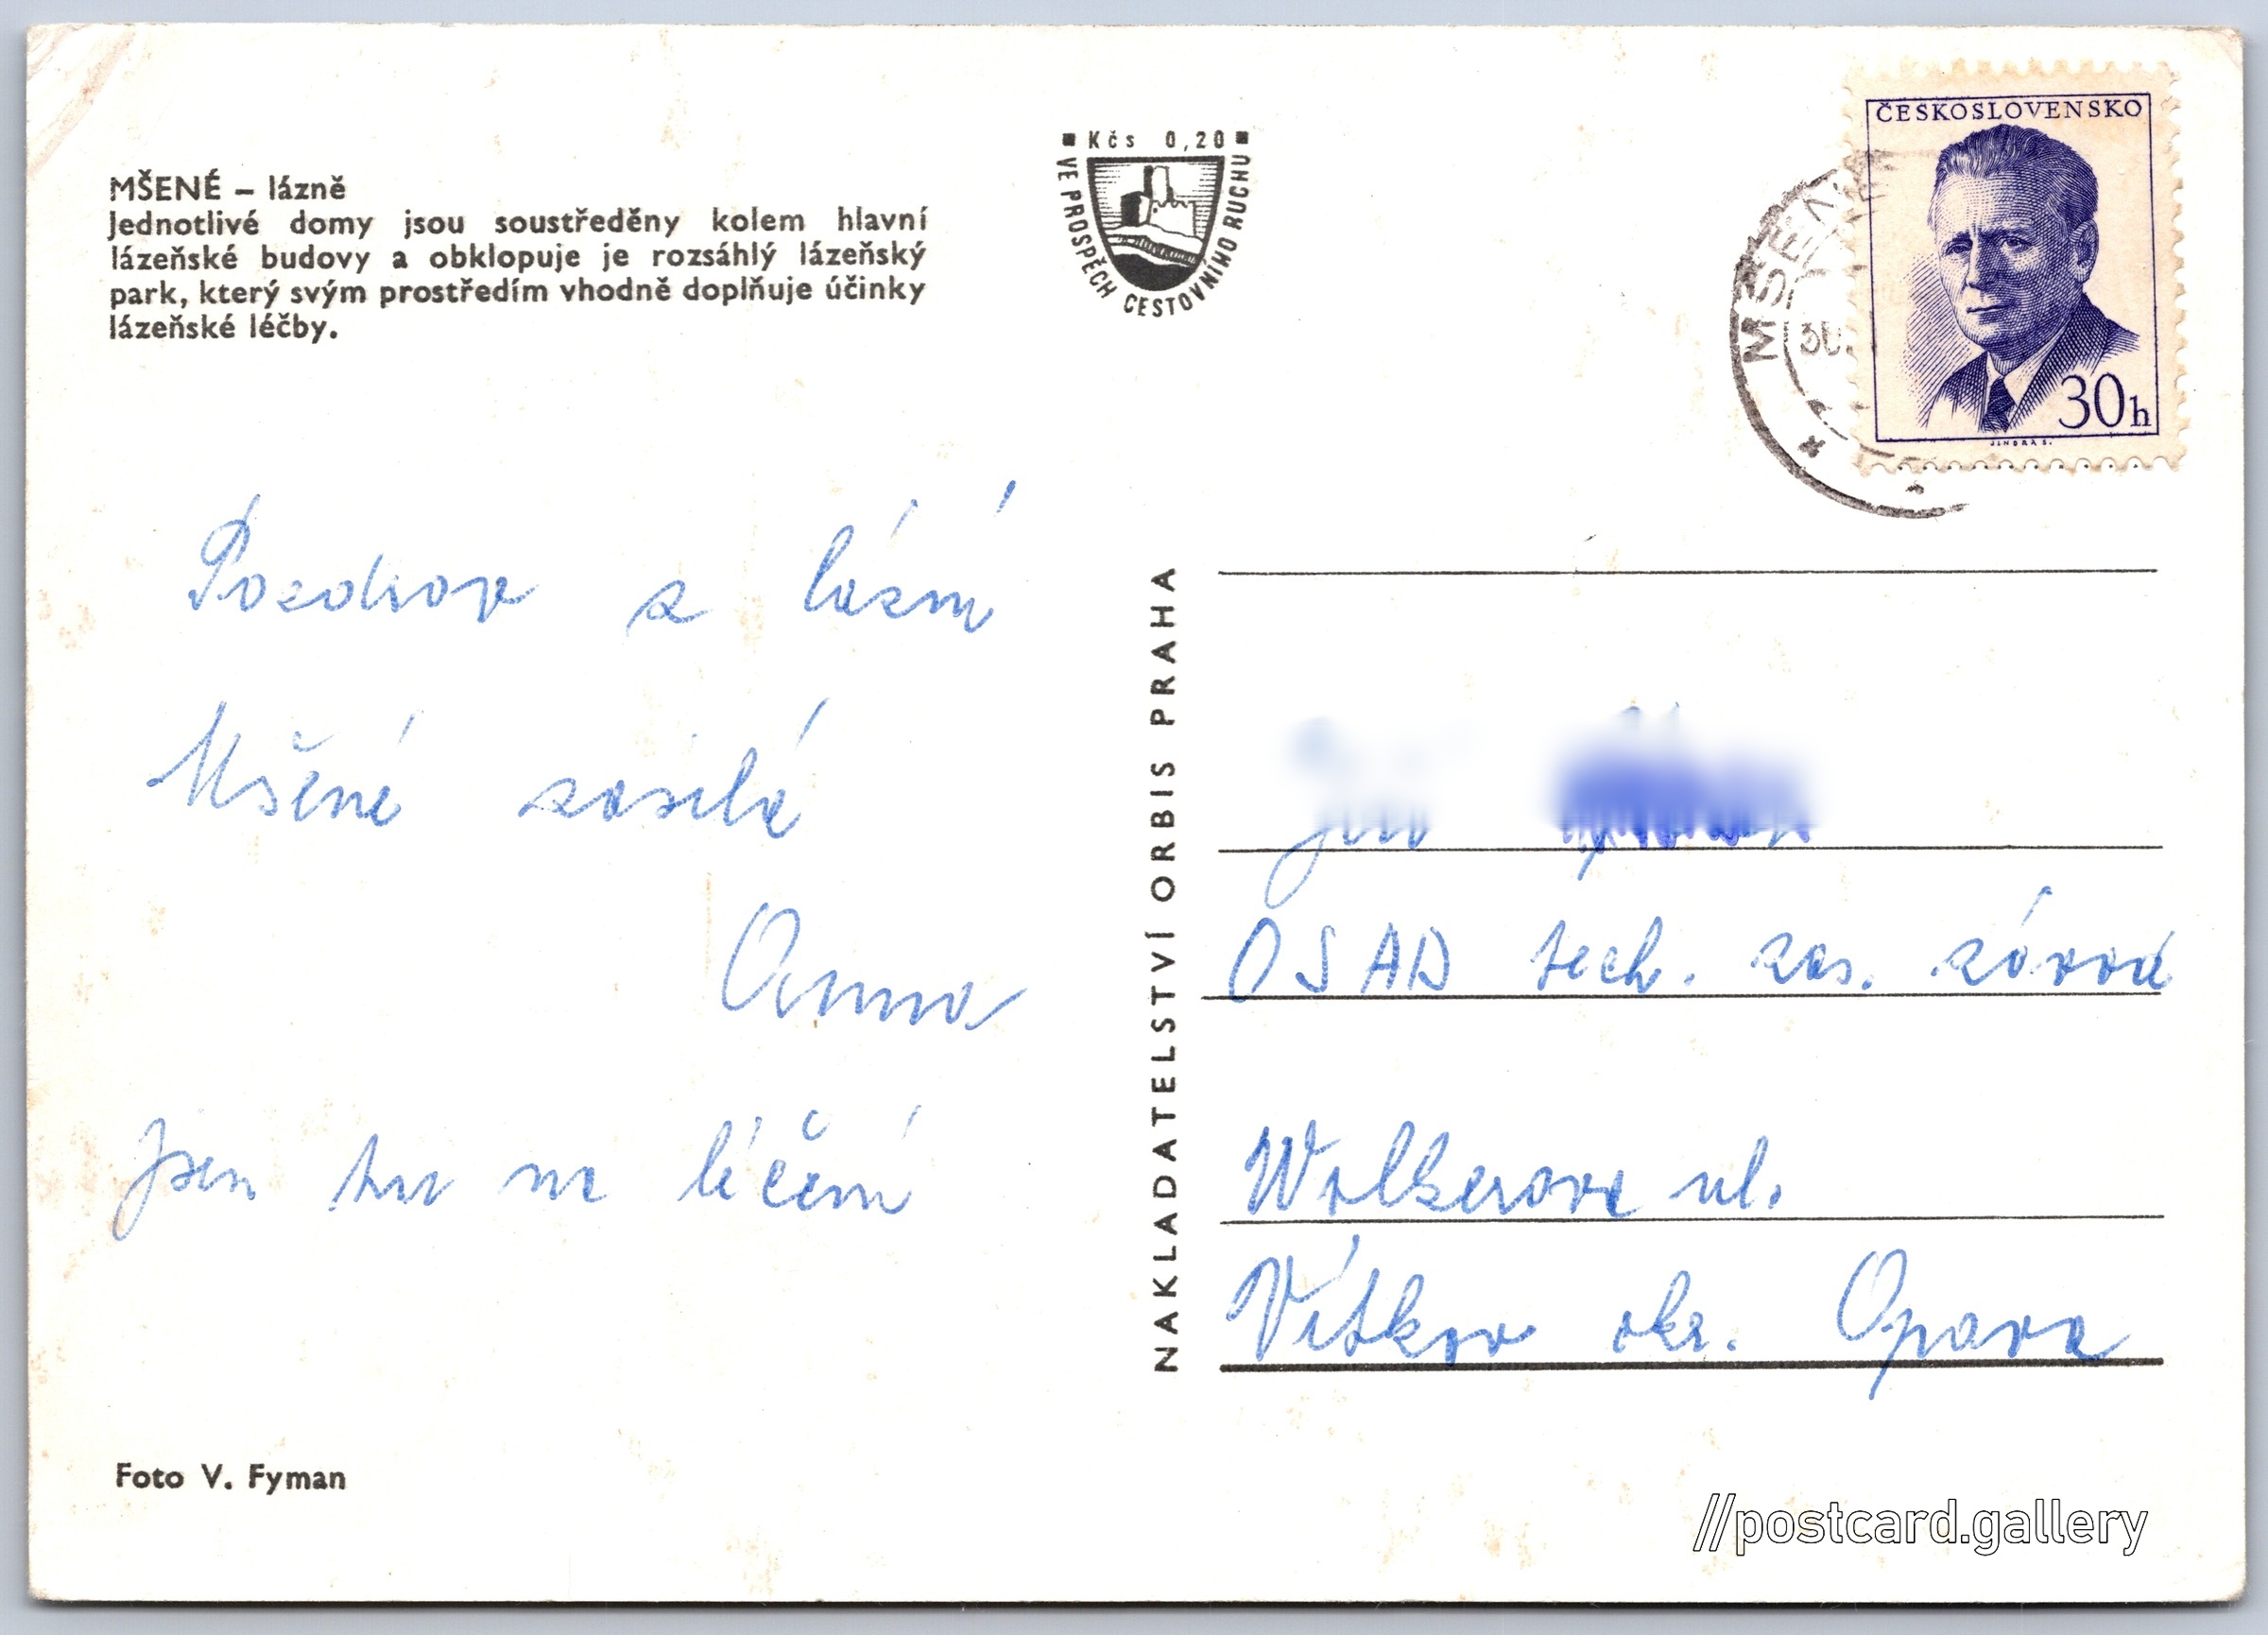 MŠENÉ – lázně
Jednotlivé domy jsou soustředěny kolem hlavní
lázeňské budovy a obklopuje je rozsáhlý lázeňský
park, který svým prostředím vhodně doplňuje účinky
lázeňské léčby.
Kčs 0,20
VE PROSPĚCH CESTOVNÍHO RUCHU
ČESKOSLOVENSKO
30h
JINDRA S.
MŠENÉ
30.
Pozdrav z lázní
Mšené zasílá
Anna
Jsem tu na léčení
NAKLADATELSTVÍ ORBIS PRAHA
Jiří
OSAD tech. zás. závod
Wolkerova ul.
Vítkov okr. Opava
Foto V. Fyman
//postcard.gallery